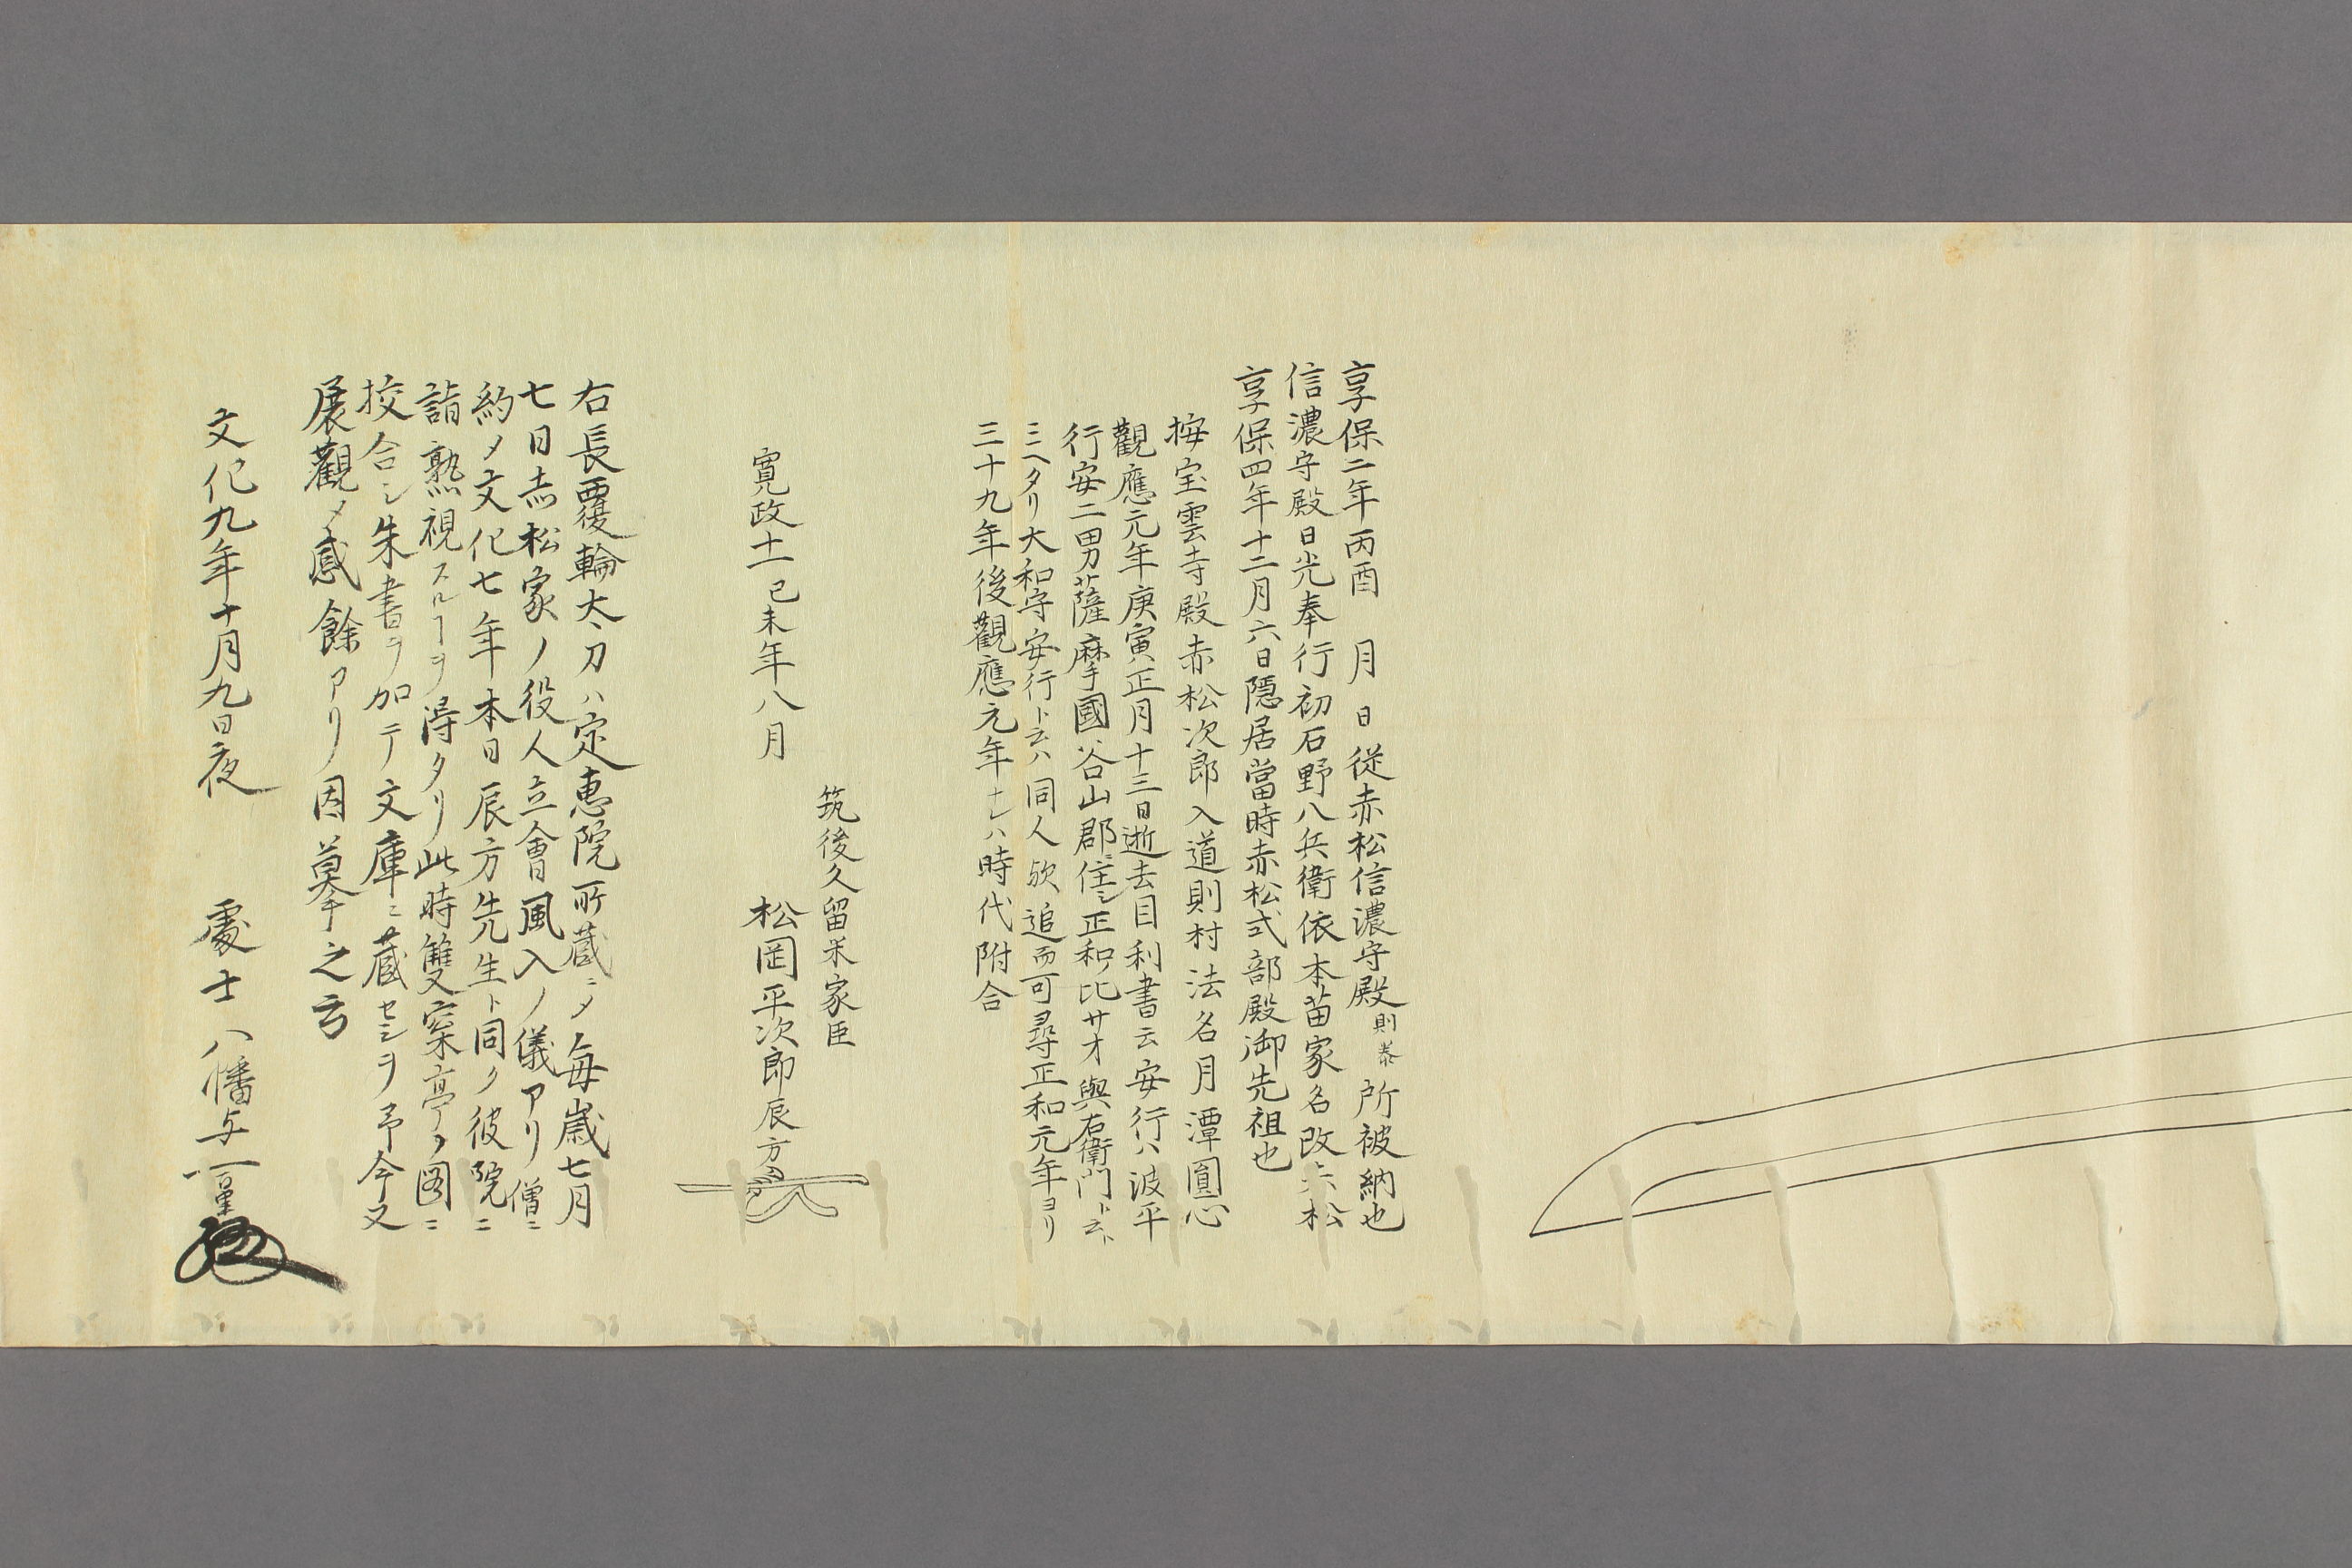 享保二年丙酉　月　日従赤松信濃守殿則泰所被納也
信濃守殿日光奉行初石野八兵衛依本苗家名改赤松
享保四年十二月六日隠居當時赤松式部殿御先祖也
按宝雲寺殿赤松次郎入道則村法名月潭圓心
觀應元年庚寅正月十三日逝去目利書云安行ハ波平
行安二男薩摩國谷山郡ニ住シ正和比サオ與右衛門ト云ト
ミヘタリ大和守安行ト云ハ同人歟追而可尋正和元年ヨリ
三十九年後觀應元年ナレハ時代附合
筑後久留米家臣
寛政十一己未年八月　松岡平次郎辰方
右長覆輪太刀ハ定惠院所蔵ニメ毎歳七月
七日赤松家ノ役人立會風入ノ儀アリ僧ニ
約メ文化七年本日辰方先生ト同ク彼院ニ
詣熟視スルヿヲ得タリ此時雙案亭ノ図ニ
挍合シ朱書ヲ加テ文庫ニ蔵セシヲ予今又
展觀メ感餘アリ因摹之云
文化九年十月九日夜　處士八幡与一